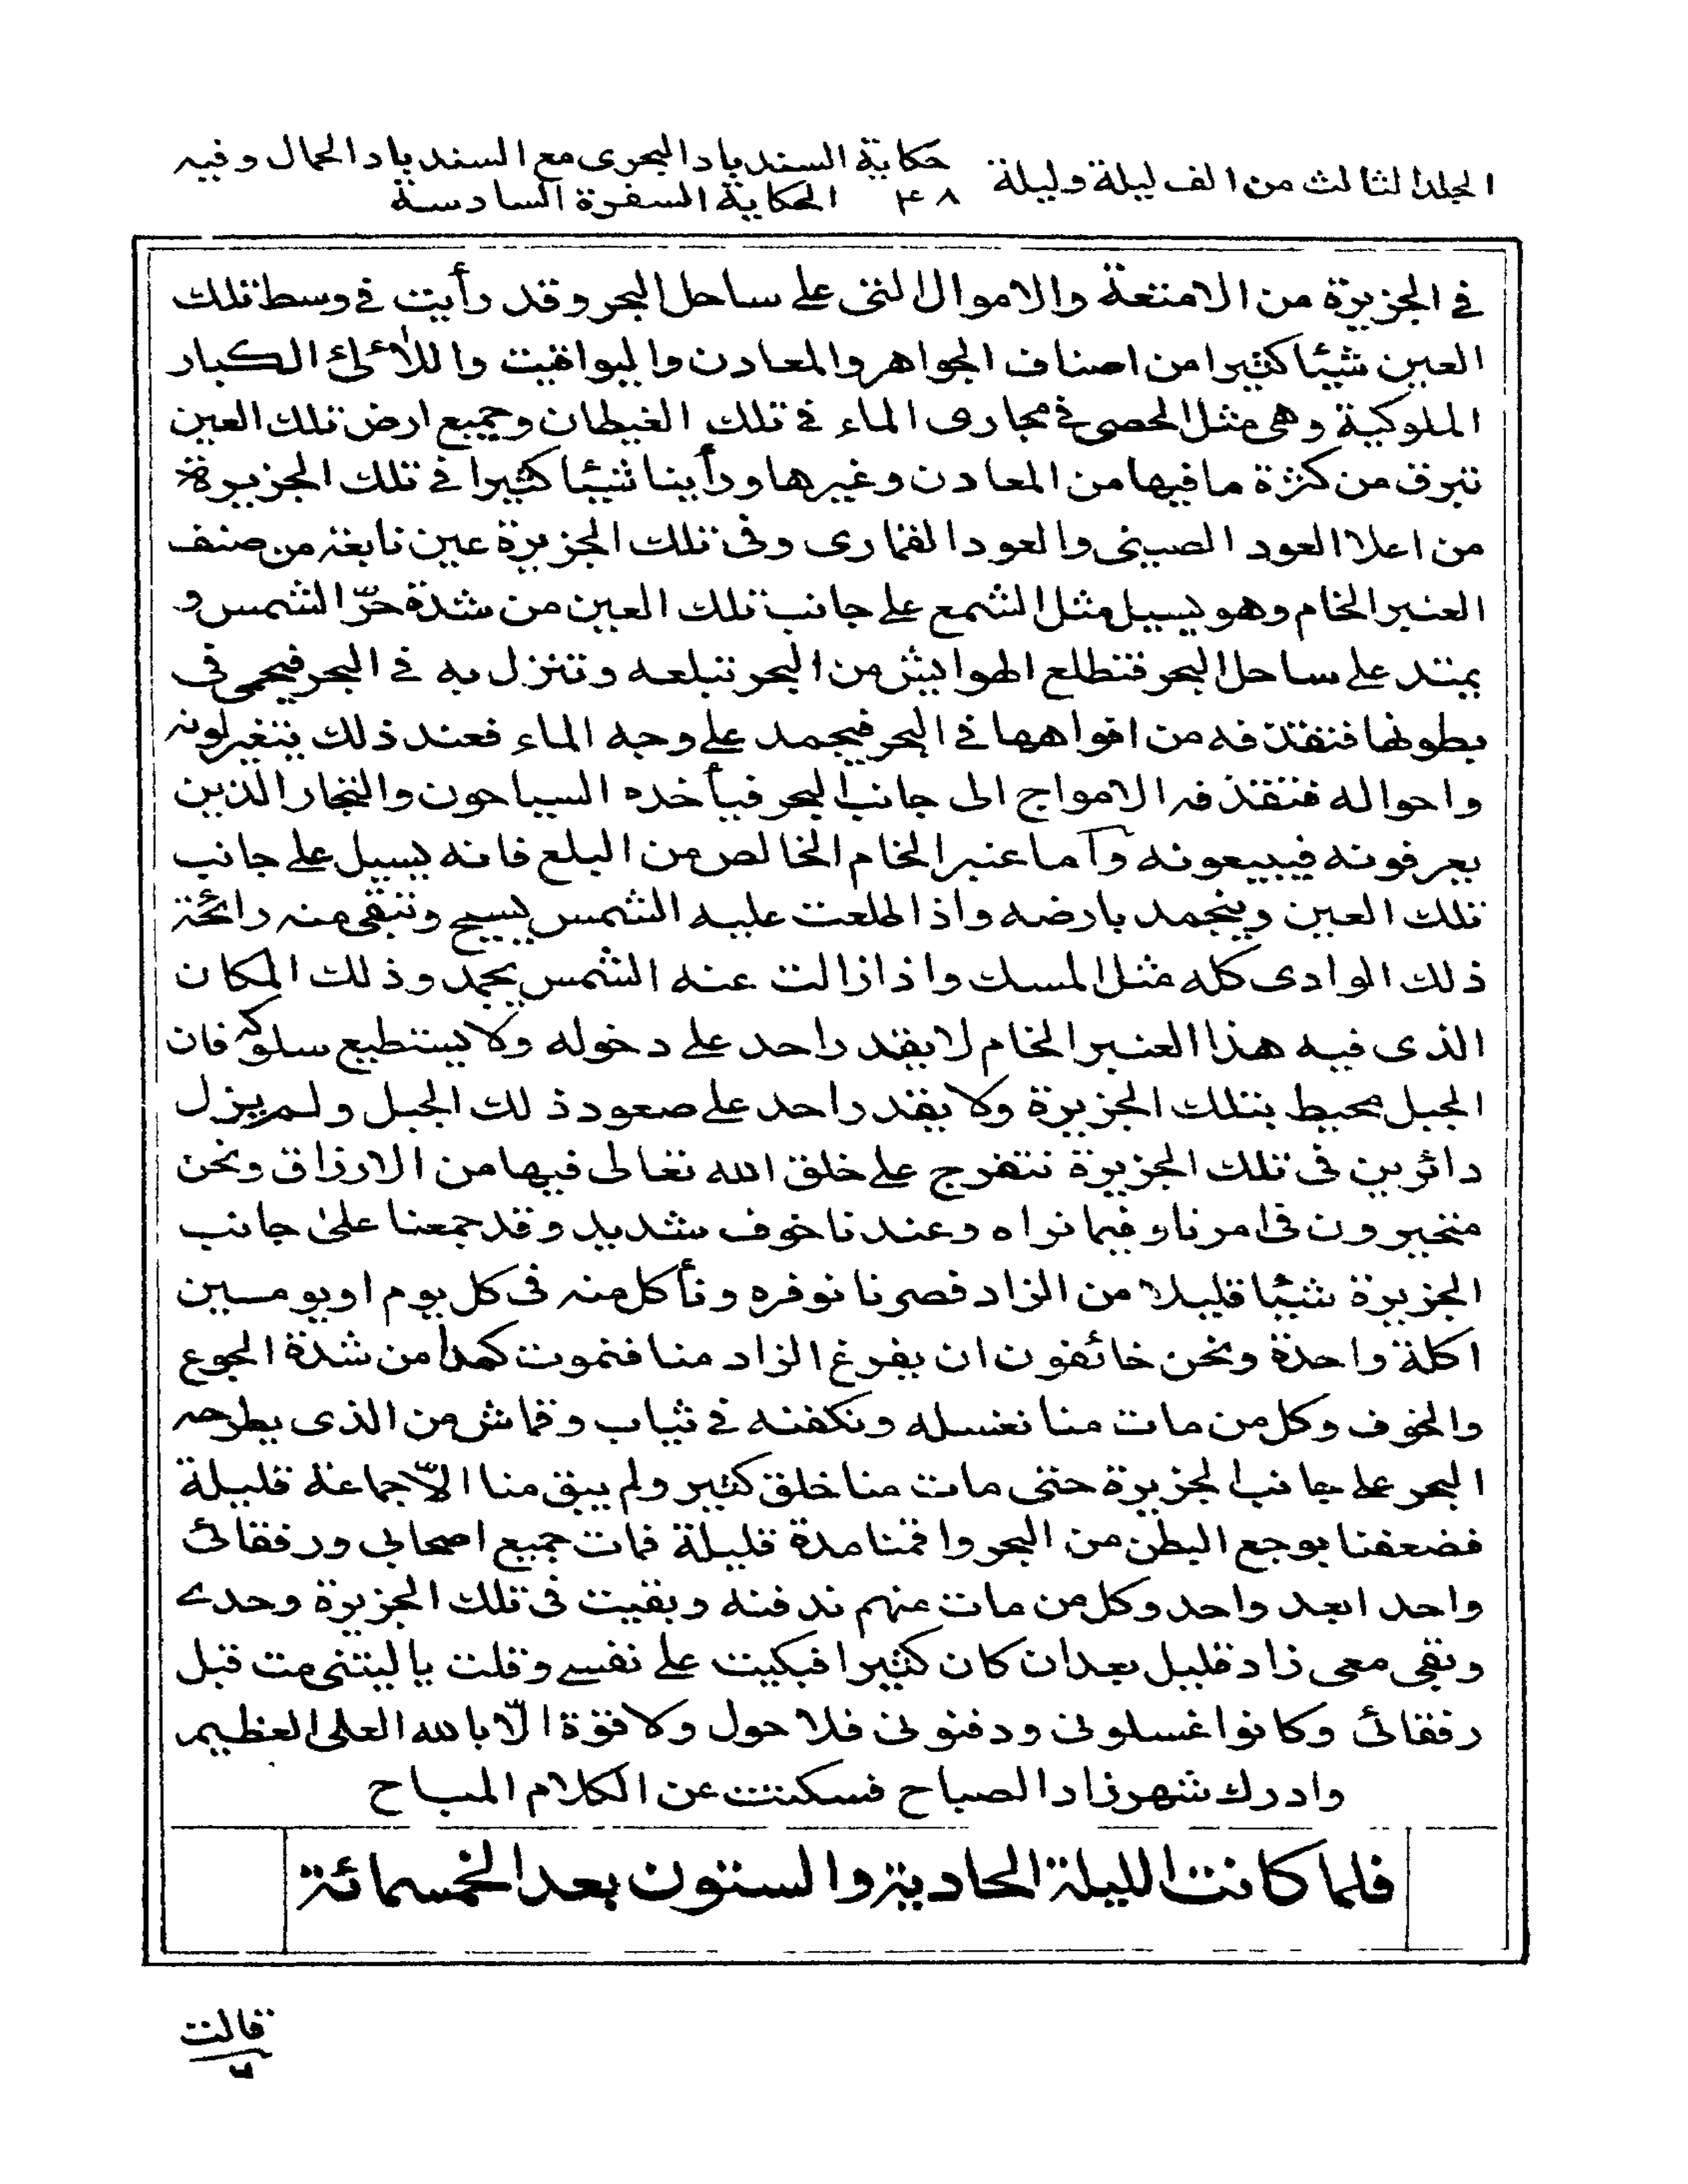 المجلد الثالث من الف ليلة وليلة ٤٨ حكاية السندباد البحرى مع السندباد الحمال وفيه
الحكاية السفرة السادسة
فى الجزيرة من الامتعة والاموال التى على ساحل البحر وقد رأيت فى وسط تلك
العين شيئا كثيرا من اصناف الجواهر والمعادن واليواقيت واللآلئ الكبار
الملوكية وهى مثل الحصى فى مجارى الماء فى تلك الغيطان وجميع ارض تلك العين
تبرق من كثرة ما فيها من المعادن وغيرها ورأينا شيئا كثيرا فى تلك الجزيرة
من اعلا العود الصينى والعود القمارى وفى تلك الجزيرة عين نابعة من صنف
العنبر الخام وهو يسيل مثل الشمع على جانب تلك العين من شدة حرّ الشمس و
يمتد على ساحل البحر فتطلع الهوايش من البحر تبلعه وتنزل به فى البحر فيحمى فى
بطونها فتقذفه من افواهها فى البحر فيجمد على وجه الماء فعند ذلك يتغير لونه
واحواله فتقذفه الامواج الى جانب البحر فيأخذه السياحون والتجار الذين
يعرفونه فيبيعونه وآما عنبر الخام الخالص من البلع فانه يسيل على جانب
تلك العين ويتجمد بارضه واذا طلعت عليه الشمس يسيح وتبقى منه رائحة
ذلك الوادى كله مثل المسك واذا زالت عنه الشمس يجمد وذلك المكان
الذى فيه هذا العنبر الخام لا يقدر احد على دخوله ولا يستطيع سلوكه فان
الجبل محيط بتلك الجزيرة ولا يقدر احد على صعود ذلك الجبل ولم يزل
دائرين فى تلك الجزيرة نتفرج على خلق الله تعالى فيها من الارزاق ونحن
متحيرون فى امرنا وفيما نراه وعندنا خوف شديد وقد جمعنا على جانب
الجزيرة شيئا قليلا من الزاد فصرنا نوفره ونأكل منه فى كل يوم او يومين
اكلة واحدة ونحن خائفون ان يفرغ الزاد منا فنموت كمدا من شدة الجوع
والخوف وكل من مات منا نغسله ونكفنه فى ثياب وقماش من الذى يطرحه
البحر على جانب الجزيرة حتى مات منا خلق كثير ولم يبق منا الّا جماعة قليلة
فضعفنا بوجع البطن من البحر واقمنا مدة قليلة فمات جميع اصحابى ورفقائى
واحد ابعد واحد وكل من مات منهم ندفنه وبقيت فى تلك الجزيرة وحدى
وبقى معى زاد قليل بعد ان كان كثيرا فبكيت على نفسى وقلت يا ليتنى مت قبل
رفقائى وكانوا غسلونى ودفنونى فلا حول ولا قوة الّا بالله العلى العظيم
وادرك شهرزاد الصباح فسكتت عن الكلام المباح
فلما كانت الليلة الحادية والستون بعد الخمسمائة
قالت